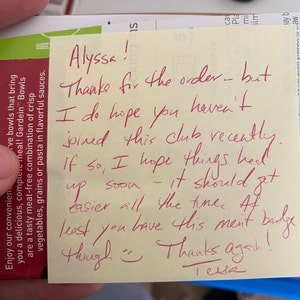 Alyssa!
Thanks for the order – but
I do hope you haven't
joined this club recently.
If so, I hope things heal
up soon – it should get
easier all the time. At
least you have this merit badge
though :) Thanks again!
Tessa
Enjoy our convenient
you a delicious, complete meal! Gardein™ Bowls
are a tasty meal-free combination of crisp
vegetables, grains or pasta in flavorful sauces.
bowls that bring